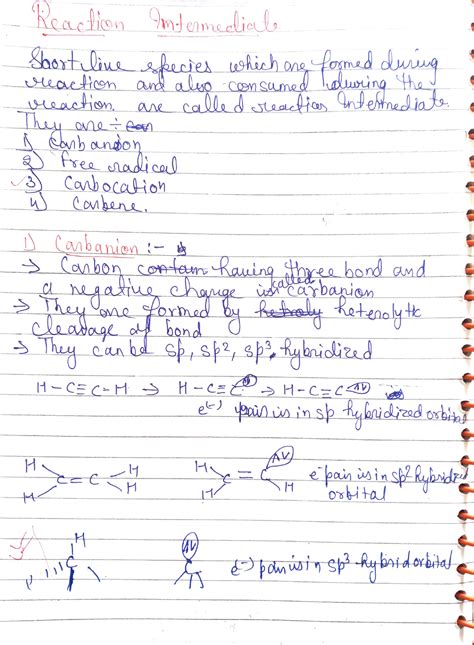 Reaction Intermediate
Short live species which are formed during
reaction and also consumed during the
reaction are called reaction Intermediate.
They are :-
1) Carbanion
2) free radical
3) Carbocation
4) Carbene.
1) Carbanion :-
→ Carbon contain having three bond and
a negative charge is called carbanion
→ They are formed by hetroly heterolytic
cleavage of bond
→ They can be sp, sp2, sp3 hybridized
H-C≡C-H → H-C≡C → H-C≡C
e(-) pair is in sp hybridized orbital
H H H
C=C C=C e- pair is in sp2 hybridized
H H H H orbital
H
C C e(-) pair is in sp3-hybrid orbital